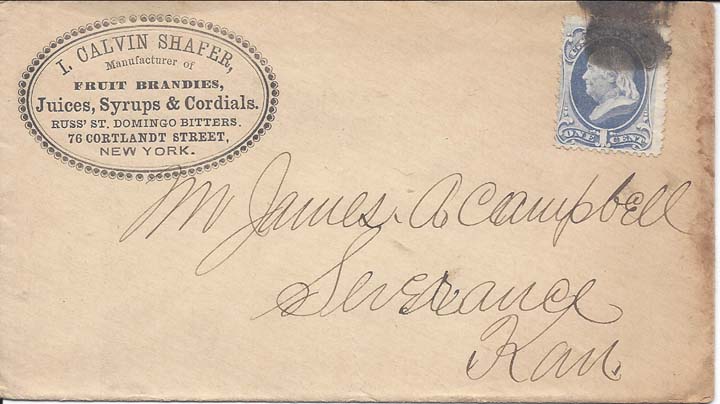 I. CALVIN SHAFER,
Manufacturer of
FRUIT BRANDIES,
Juices, Syrups & Cordials.
RUSS' ST. DOMINGO BITTERS.
76 CORTLANDT STREET,
NEW YORK.
ONE 1 CENT
Mr James. A Campbell
Severance
Kan.